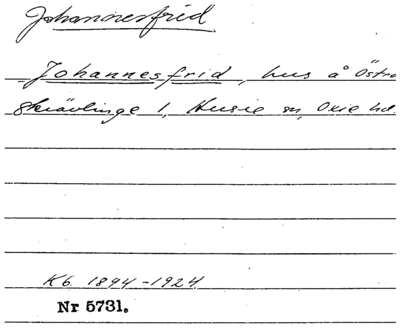 Johannesfrid
Johannesfrid, hus å Östra
Skrävlinge 1, Husie sn, Oxie hd.
Kb. 1894-1924
Nr 5731.